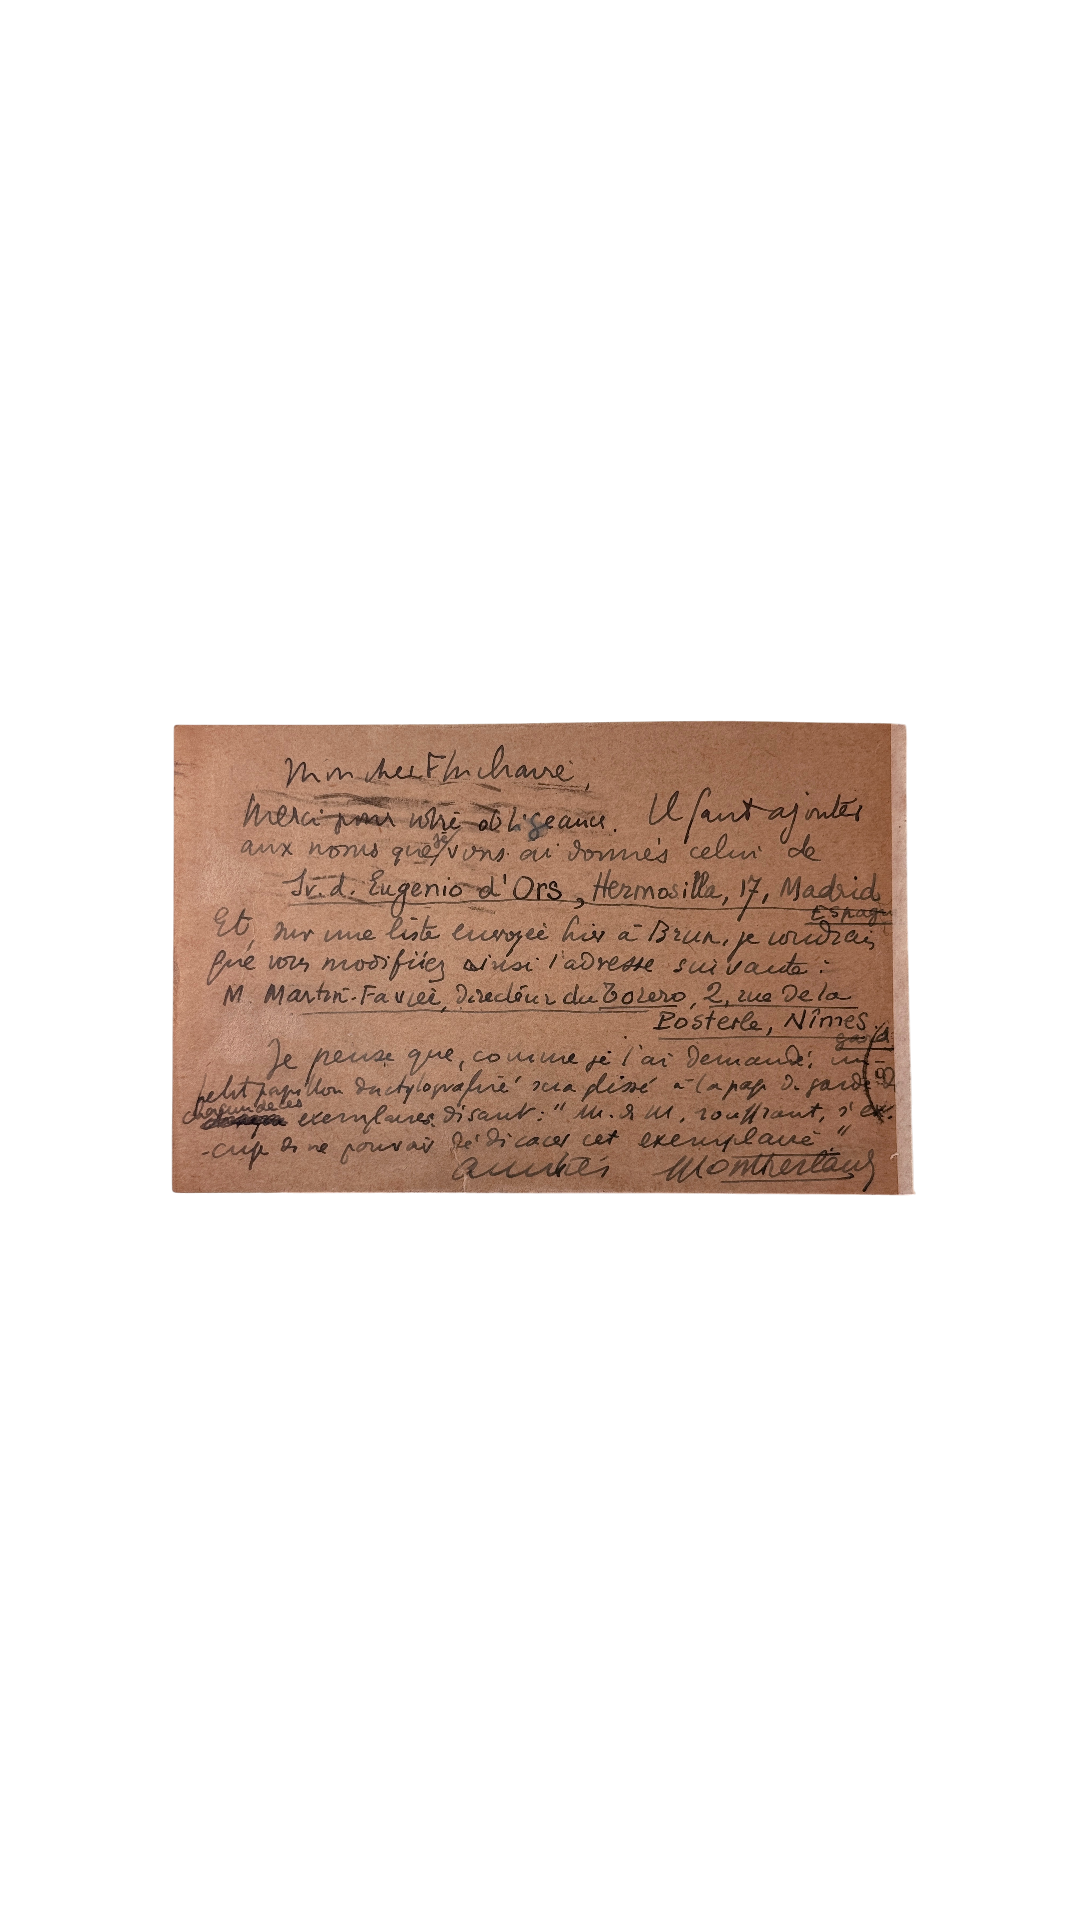 Mon cher Fluchaire,
Merci pour votre obligeance. Il faut ajouter
aux noms que je vous ai donnés celui de
Sr. d. Eugenio d'Ors, Hermosilla, 17, Madrid
Espagne
Et, sur une liste envoyée hier à Brun, je voudrais
que vous modifiiez ainsi l'adresse suivante :
M. Martin-Favier, Directeur du Torero, 2, rue de la
Posterle, Nîmes.
Je pense que, comme je l'ai demandé, un
petit papillon dactylographié sera glissé à la page de garde
chacun de ces exemplaires disant : " M. de M, souffrant, s'ex-
-cuse de ne pouvoir dédicacer cet exemplaire "
amitiés Montherlant